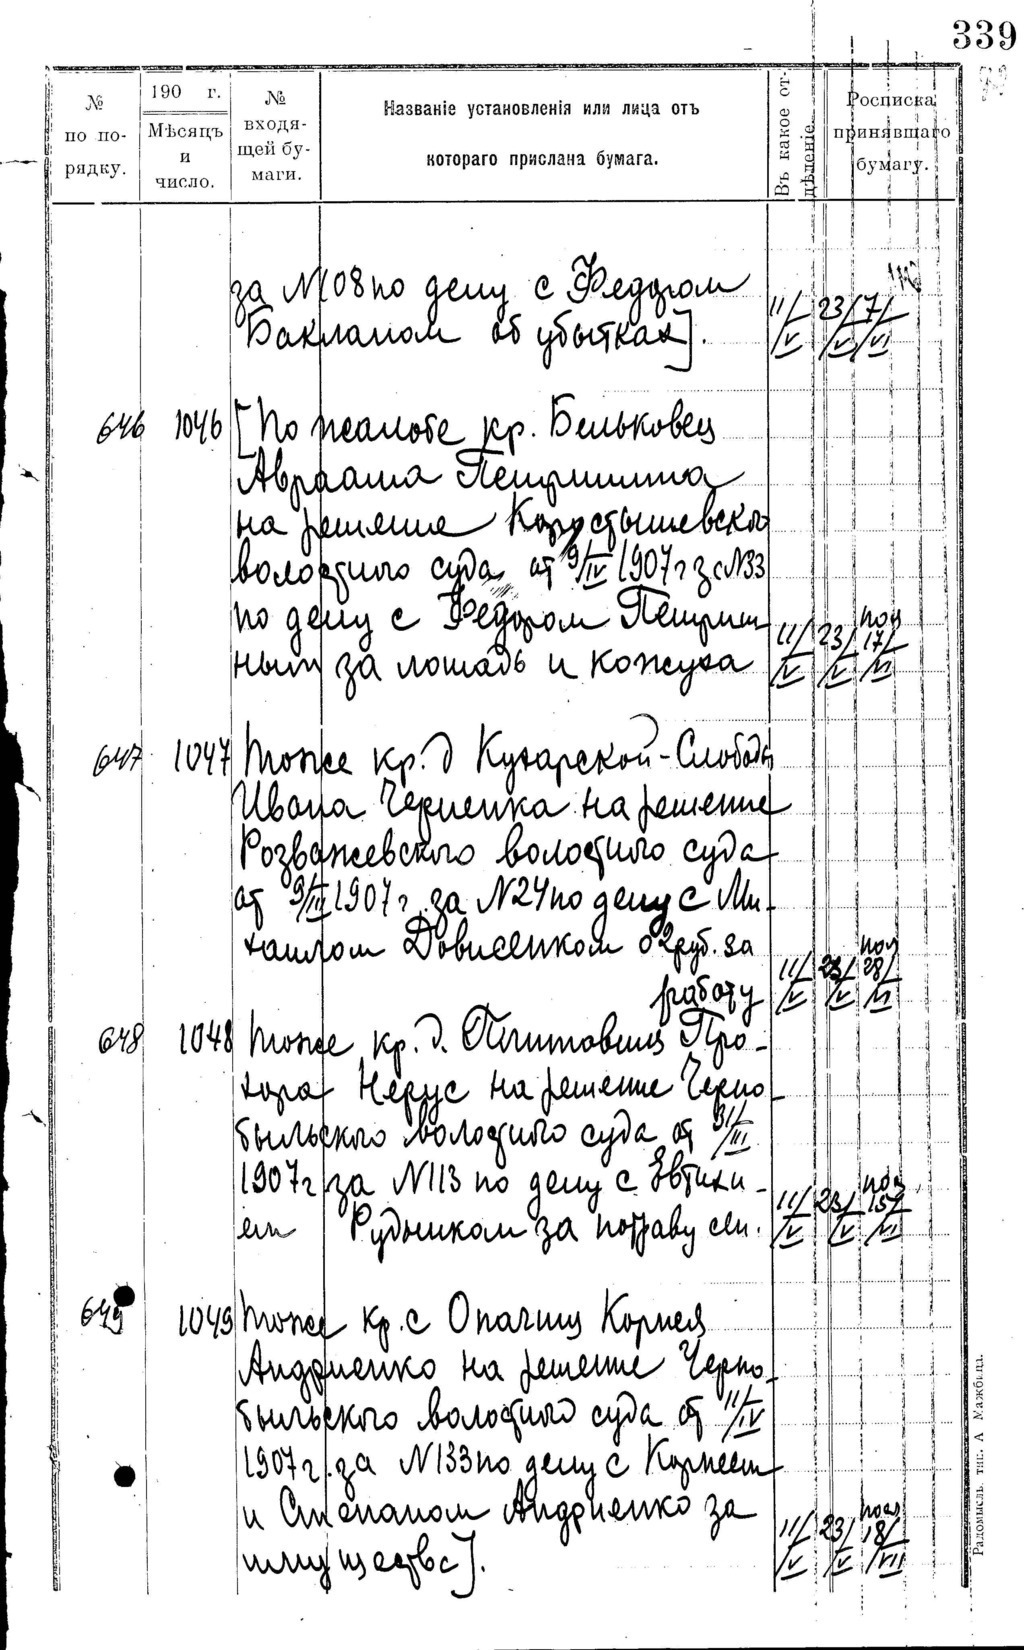 339
№ по по-рядку.
190 г. Мѣсяцъ и число.
№ входя-щей бу-маги.
Названіе установленія или лица отъ котораго прислана бумага.
Въ какое от-дѣленіе.
Росписка принявшаго бумагу.
за N108 по делу с Федором
Бакланом об убытках].
11/V 23/V 7/VI
646 1046 [По жалобе кр. Бельковец
Авраама Петришина
на решение Коростышевского
волостного суда от 9/IV 1907 г за N33
по делу с Федором Петриш
ным за лошадь и кожуха
11/V 23/V 17/VI
647 1047 Тоже кр. д Кухарской-Слободы
Ивана Черненка на решение
Розважевского волостного суда
от 9/III 1907 г за N24 по делу с Ми-
хаилом Довиленком о 2 руб. за
работу
11/V 23/V 28/VI
648 1048 Тоже кр. д. Плитовищ Про-
хора Нерус на решение Черно-
быльского волостного суда от 31/III
1907 г за N113 по делу с Евтихи-
ем Рудником за потраву сен.
11/V 23/V 15/VI
649 1049 Тоже кр. с Опачич Корнея
Андриенко на решение Черно-
быльского волостного суда от 11/IV
1907 г. за N133 по делу с Корнеем
и Степаном Андриенко за
имущество].
11/V 23/V 18/VII
Радомысль. тип. А Мажбица.